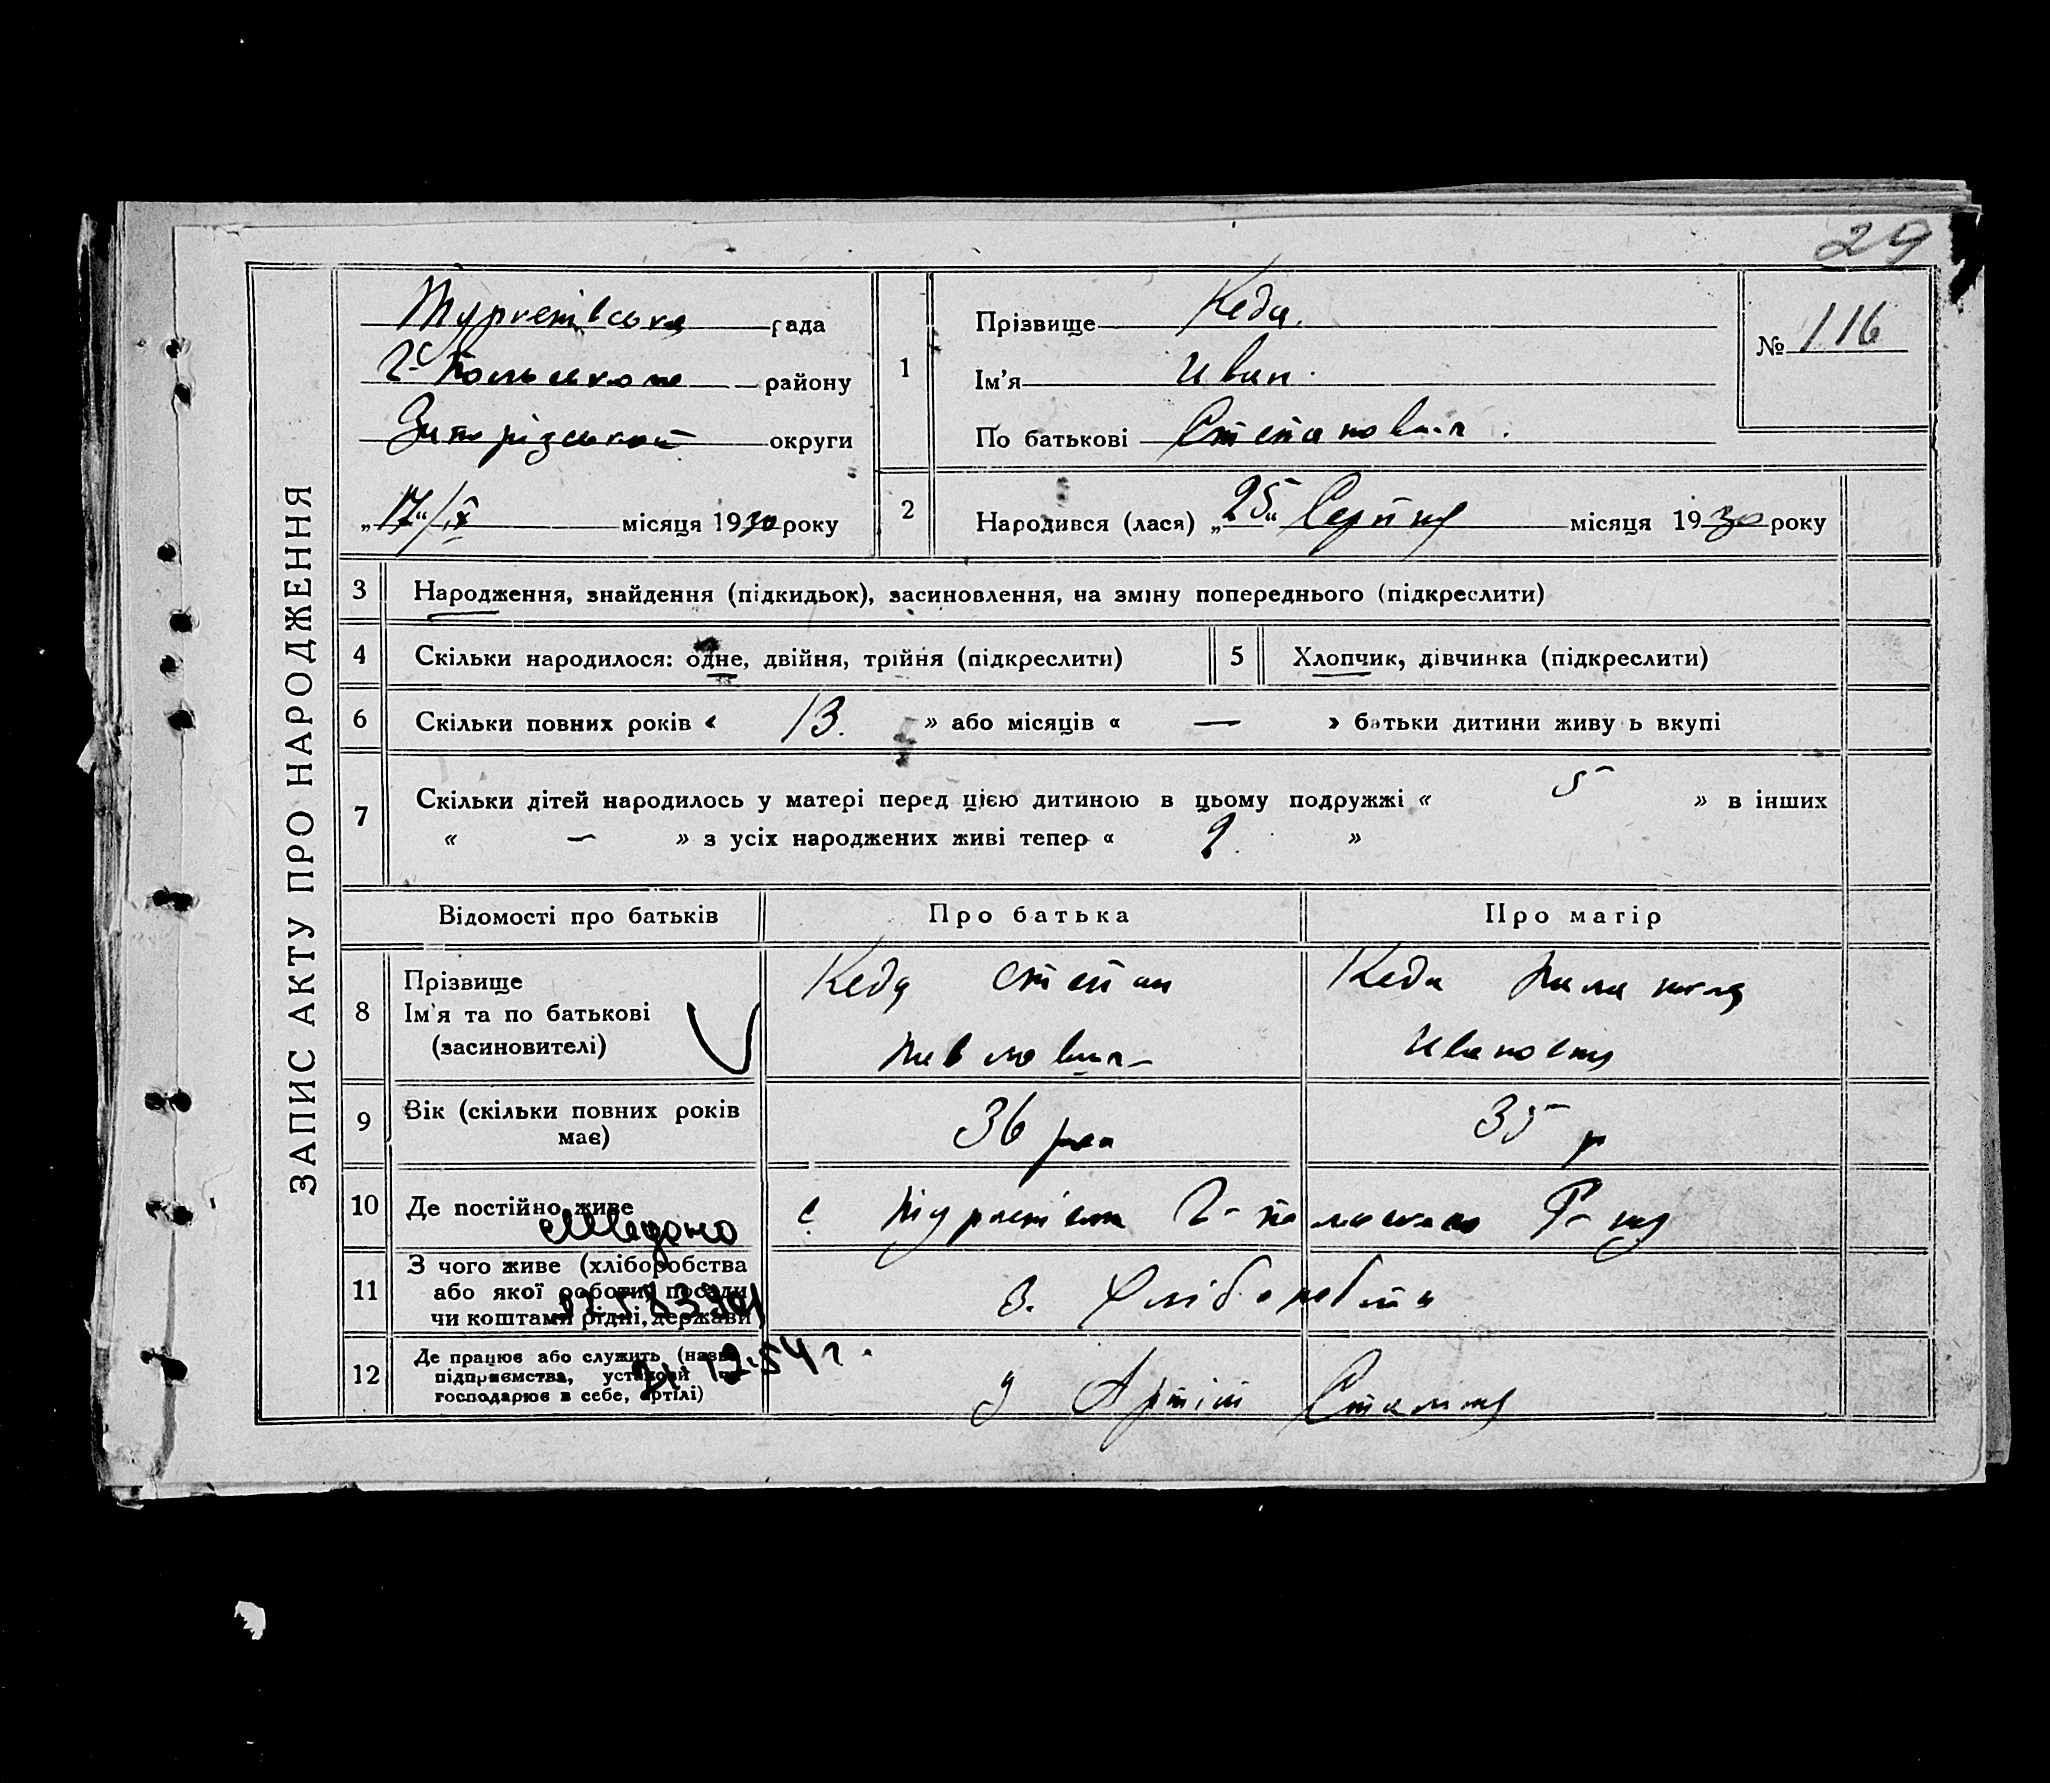 29
ЗАПИС АКТУ ПРО НАРОДЖЕННЯ
Туркенівська рада
Г-Польського району
Запорізької округи
„17“/IX місяця 1930 року
1
Прізвище Кеда.
Ім'я Иван.
По батькові Степанович.
№ 116
2
Народився (лася) „25“ Серпня місяця 1930 року
3 Народження, знайдення (підкидьок), засиновлення, на зміну попереднього (підкреслити)
4 Скільки народилося: одне, двійня, трійня (підкреслити)
5 Хлопчик, дівчинка (підкреслити)
6 Скільки повних років « 13. » або місяців « — » батьки дитини живу ь вкупі
7 Скільки дітей народилось у матері перед цією дитиною в цьому подружжі « 5 » в інших
« — » з усіх народжених живі тепер « 2. »
Відомості про батьків Про батька Про матір
8 Прізвище
Ім'я та по батькові
(засиновителі)
Кеда Степан
Павлович
Кеда
Ивановна
9 Вік (скільки повних років
має)
36 рок
35 р
10 Де постійно живе
с Туркенівка Г-Польського Р-ну
Медоно
11 З чого живе (хліборобства
або якої роботи, посади
чи коштами рідні, держави
З. Хліборобства
12 Де працює або служить (назва
підприємства, установи
господарює в себе, артілі)
12.54 г.
У Артілі Сталіна